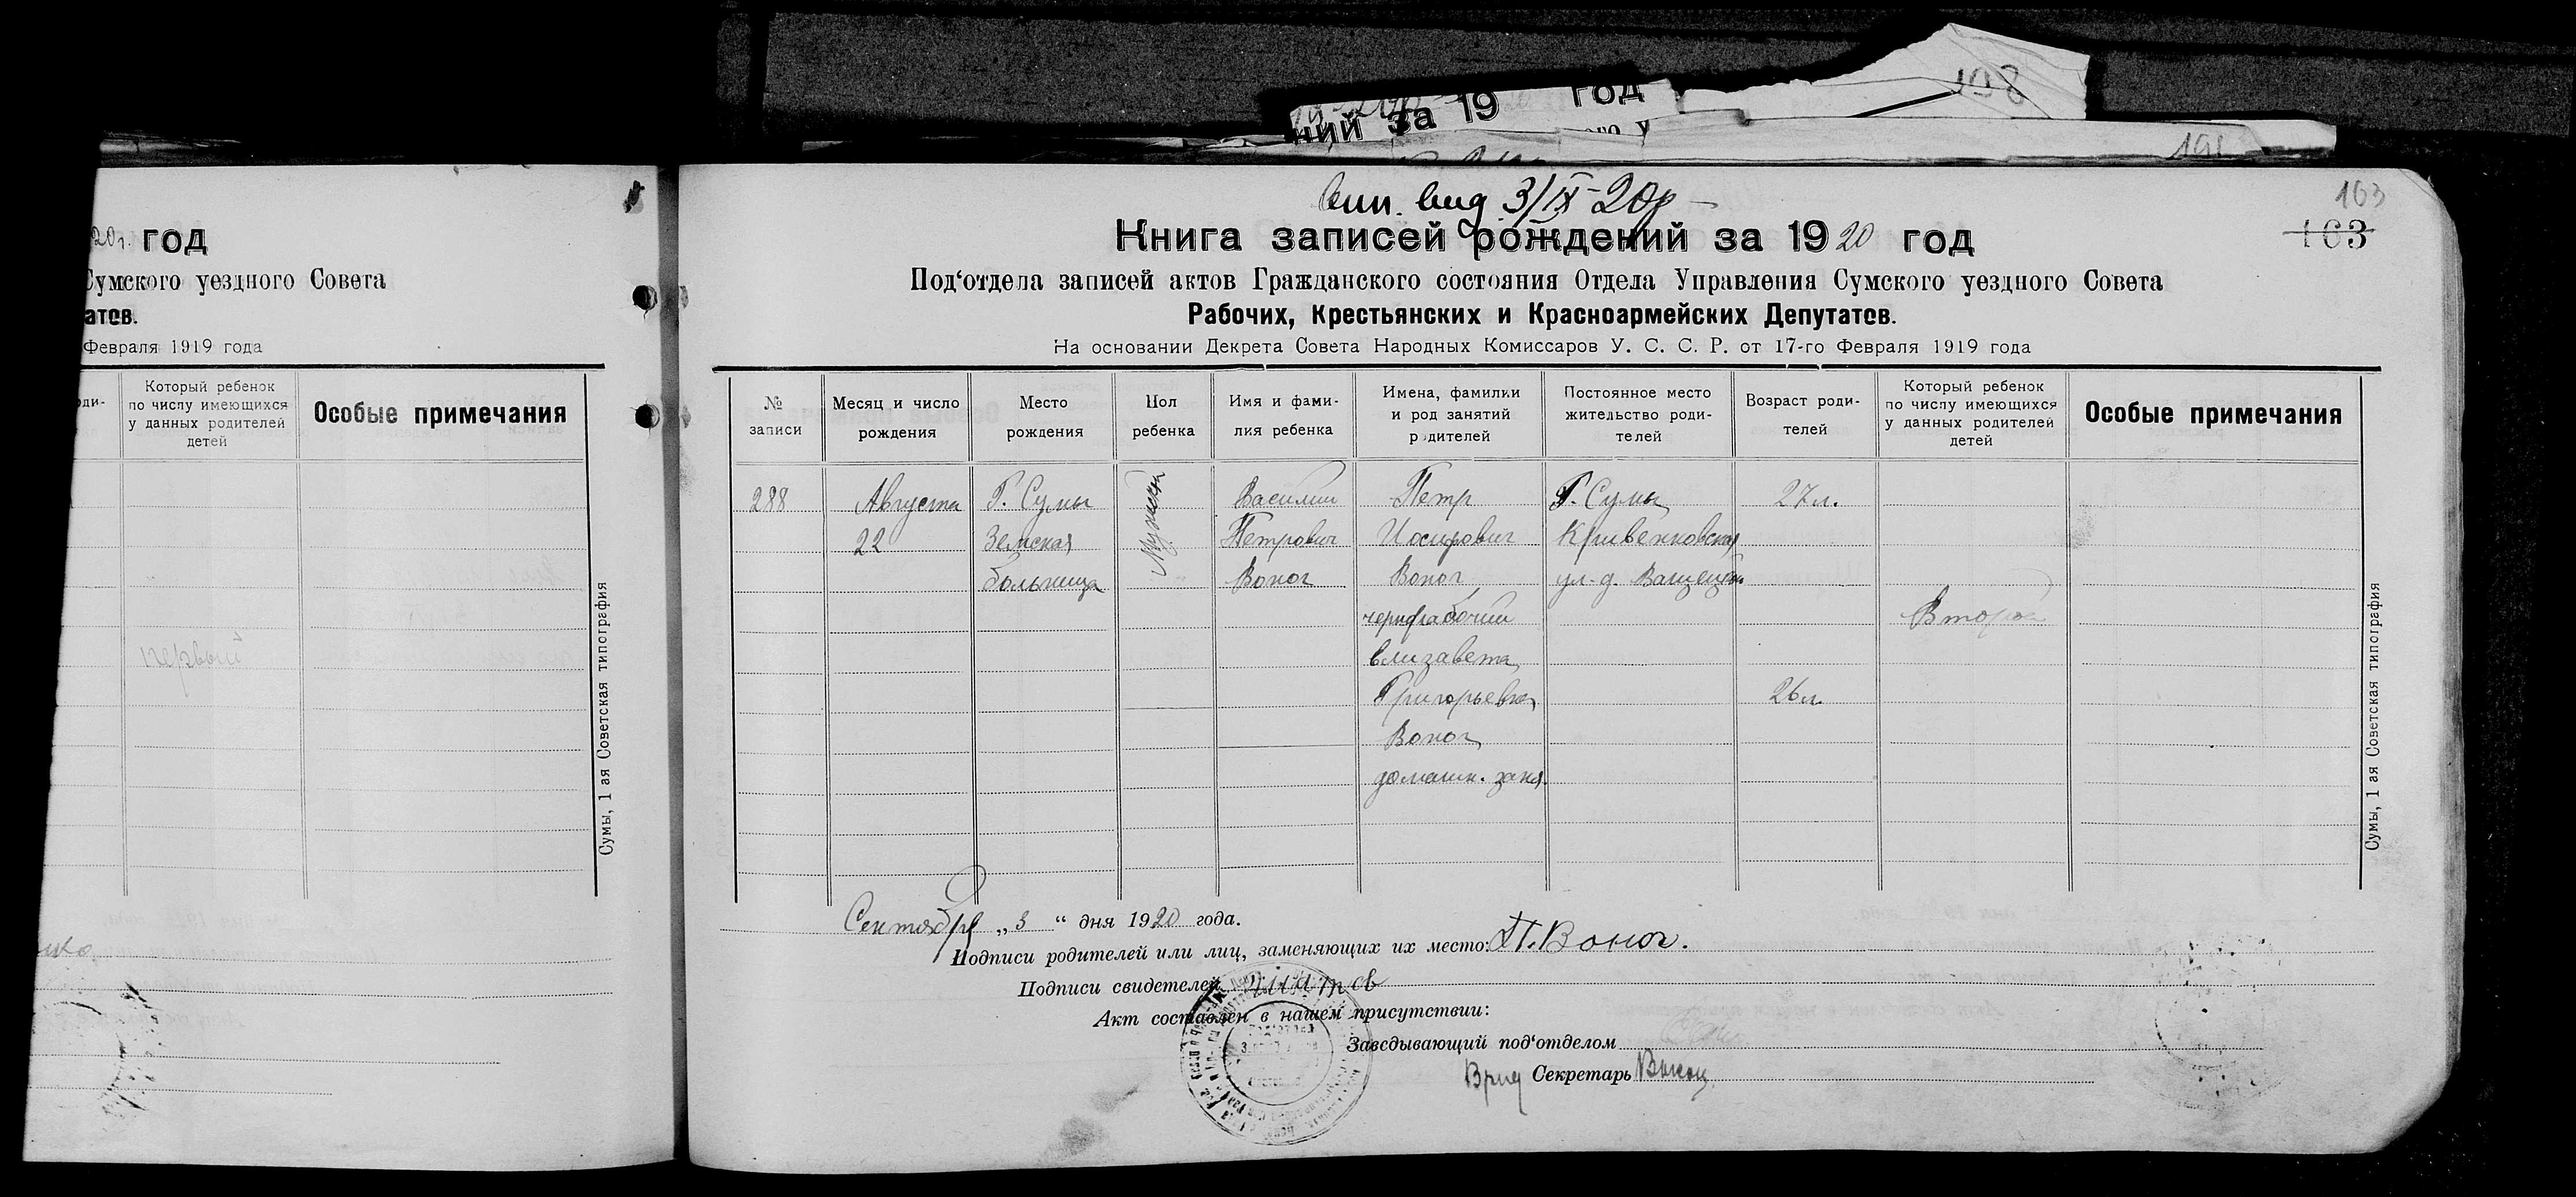 108
ний за 19 год
191
20г. год
Сумского уездного Совета
атов.
Февраля 1919 года
Который ребенок
по числу имеющихся
у данных родителей
детей
Особые примечания
первый
Сумы, 1 ая Советская типография
вид. 3/IX-20р
163
163
Книга записей рождений за 1920 год
Под‘отдела записей актов Гражданского состояния Отдела Управления Сумского уездного Совета
Рабочих, Крестьянских и Красноармейских Депутатов.
На основании Декрета Совета Народных Комиссаров У. С. С. Р. от 17-го Февраля 1919 года
№
записи
Месяц и число
рождения
Место
рождения
Пол
ребенка
Имя и фами-
лия ребенка
Имена, фамилии
и род занятий
родителей
Постоянное место
жительство роди-
телей
Возраст роди-
телей
Который ребенок
по числу имеющихся
у данных родителей
детей
Особые примечания
288
Августа
22
Г. Сумы
Земская
больница
Василий
Петрович
Воног
Петр
Иосифович
Воног
чернорабочий
Елизавета
Григорьевна
Воног
домашн. заня.
Г. Сумы
Кривенковская
ул. д.
27 л.
26 л.
Второй
Сентября „3“ дня 1920 года.
Подписи родителей или лиц, заменяющих их место: П. Воног.
Подписи свидетелей
Акт составлен в нашем присутствии:
Заведывающий под‘отделом
Врид Секретарь
Сумы, 1 ая Советская типография